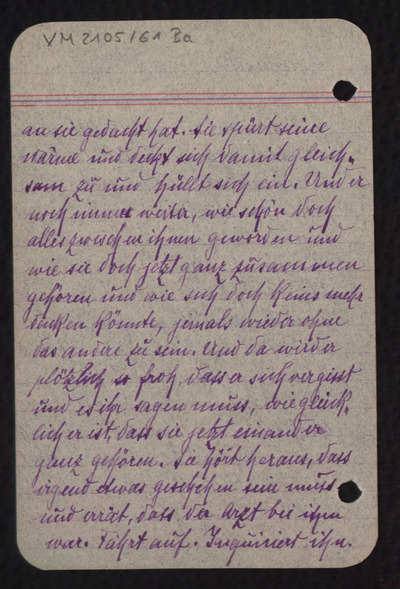 VM 2105/61 Ba
an sie gedacht hat. Sie spürt seine
Wärme und deckt sich damit gleich-
sam zu und hüllt sich ein. Und er
noch immer weiter, wie schön doch
alles zwischen ihnen geworden und
wie sie doch jetzt ganz zusammen
gehören und wie sich doch keins mehr
denken könnte, jemals wieder ohne
das andere zu sein. Und da wird er
plötzlich so froh, dass er sich vergisst
und es ihr sagen muss, wie glück-
lich er ist, dass sie jetzt einander
ganz gehören. Sie hört heraus, dass
irgend etwas geschehen sein muss
und errät, dass der Arzt bei ihm
war. Fährt auf. Inquiriert ihn.